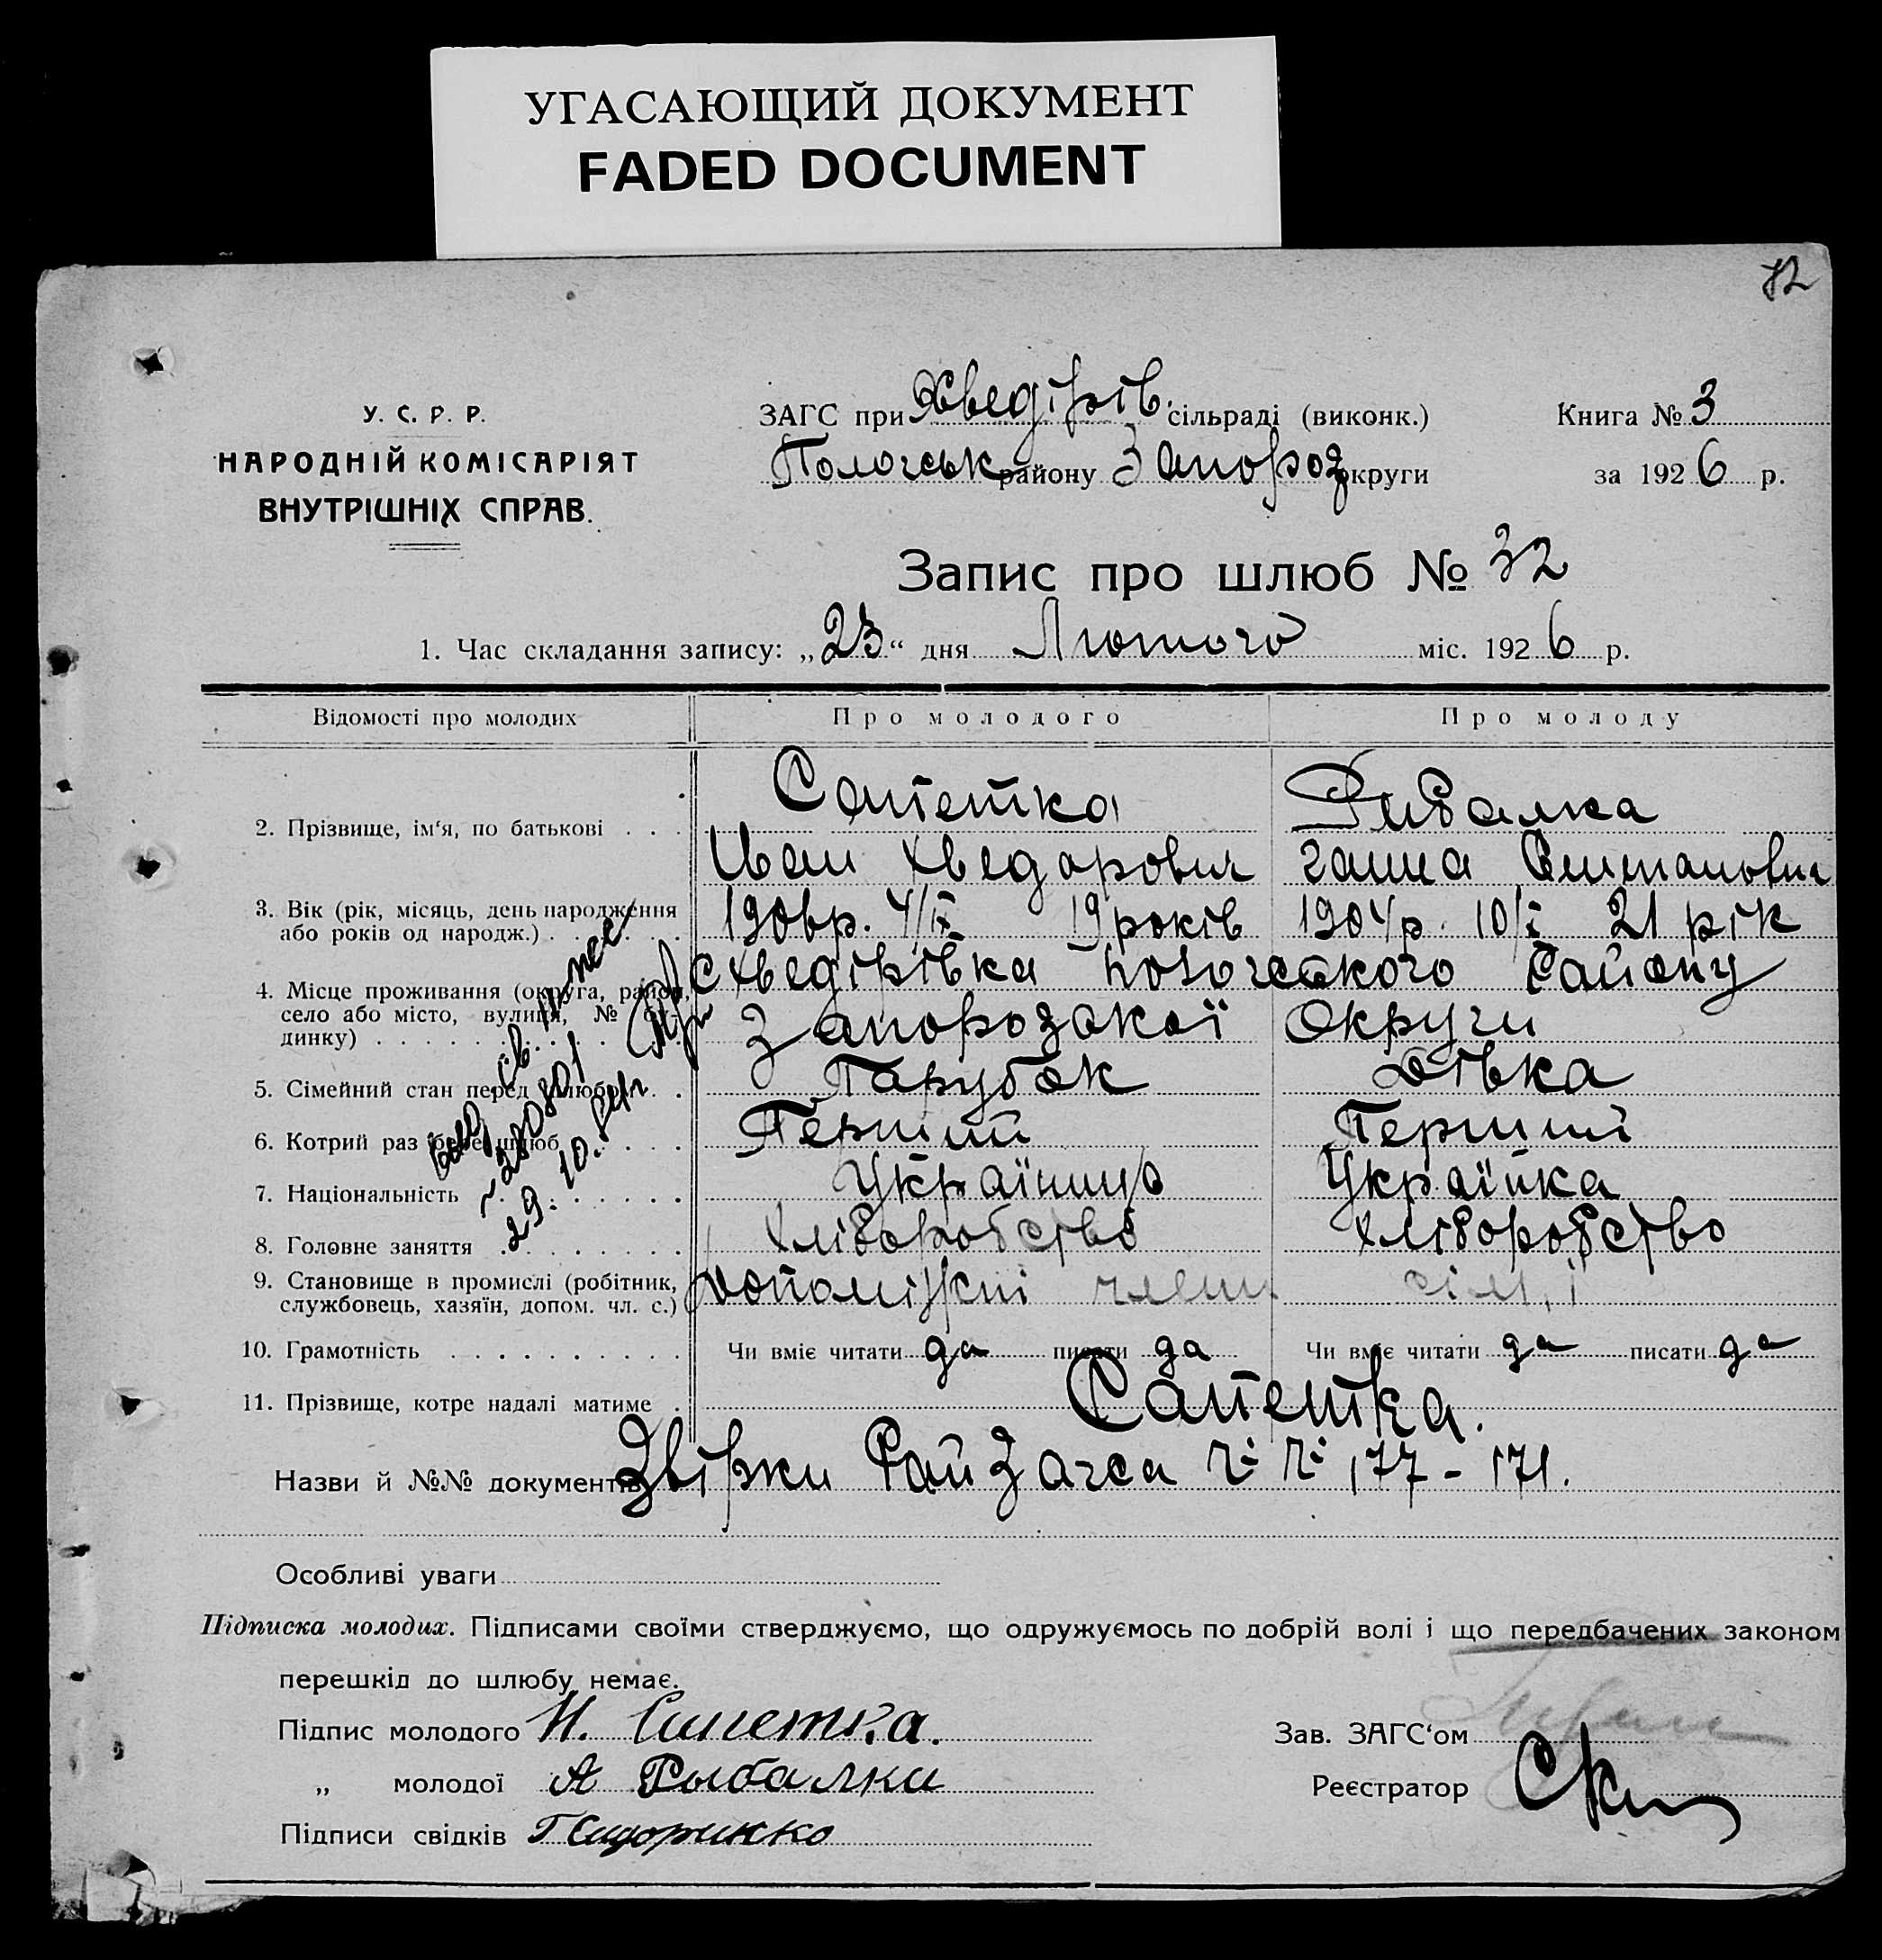 УГАСАЮЩИЙ ДОКУМЕНТ
FADED DOCUMENT
У. С. Р. Р.
НАРОДНІЙ КОМІСАРІЯТ
ВНУТРІШНІХ СПРАВ.
ЗАГС при Хведірів. сільраді (виконк.)
Пологськ району Запороз округи
Книга № 3
за 1926 р.
Запис про шлюб № 32
1. Час складання запису: „23“ дня Лютого міс. 1926 р.
Відомості про молодих Про молодого Про молоду
2. Прізвище, ім‘я, по батькові . . . Сапетка Рибалка
Иван Хведарович ганна
3. Вік (рік, місяць, день народження або років од народж.) . 1906р. 4/IX 19 років 1904р. 10/I 21 рік
4. Місце проживання (округа, район, село або місто, вулиця, № будинку) . С Хведірівка Пологского Району
Запорозокої Округи
5. Сімейний стан перед шлюбом . . Парубок Дівка
6. Котрий раз бере шлюб . . . . Перший Перший
7. Національність . . . . . . Україниць Українка
8. Головне заняття . . . . . . . хліборобство хліборобство
9. Становище в промислі (робітник, службовець, хазяїн, допом. чл. с.) Допоміжні члени сімї
10. Грамотність . . . . . . . . . Чи вміє читати да писати да Чи вміє читати да писати да
11. Прізвище, котре надалі матиме . Сапетка.
Назви й №№ документів Звірки РайЗагса 177 - 171.
Особливі уваги
Підписка молодих. Підписами своїми стверджуємо, що одружуємось по добрій волі і що передбачених законом
перешкід до шлюбу немає.
Підпис молодого И. Сапетка.
Зав. ЗАГС‘ом
„ молодої А Рыбалка
Реєстратор
Підписи свідків Г Сидоринко